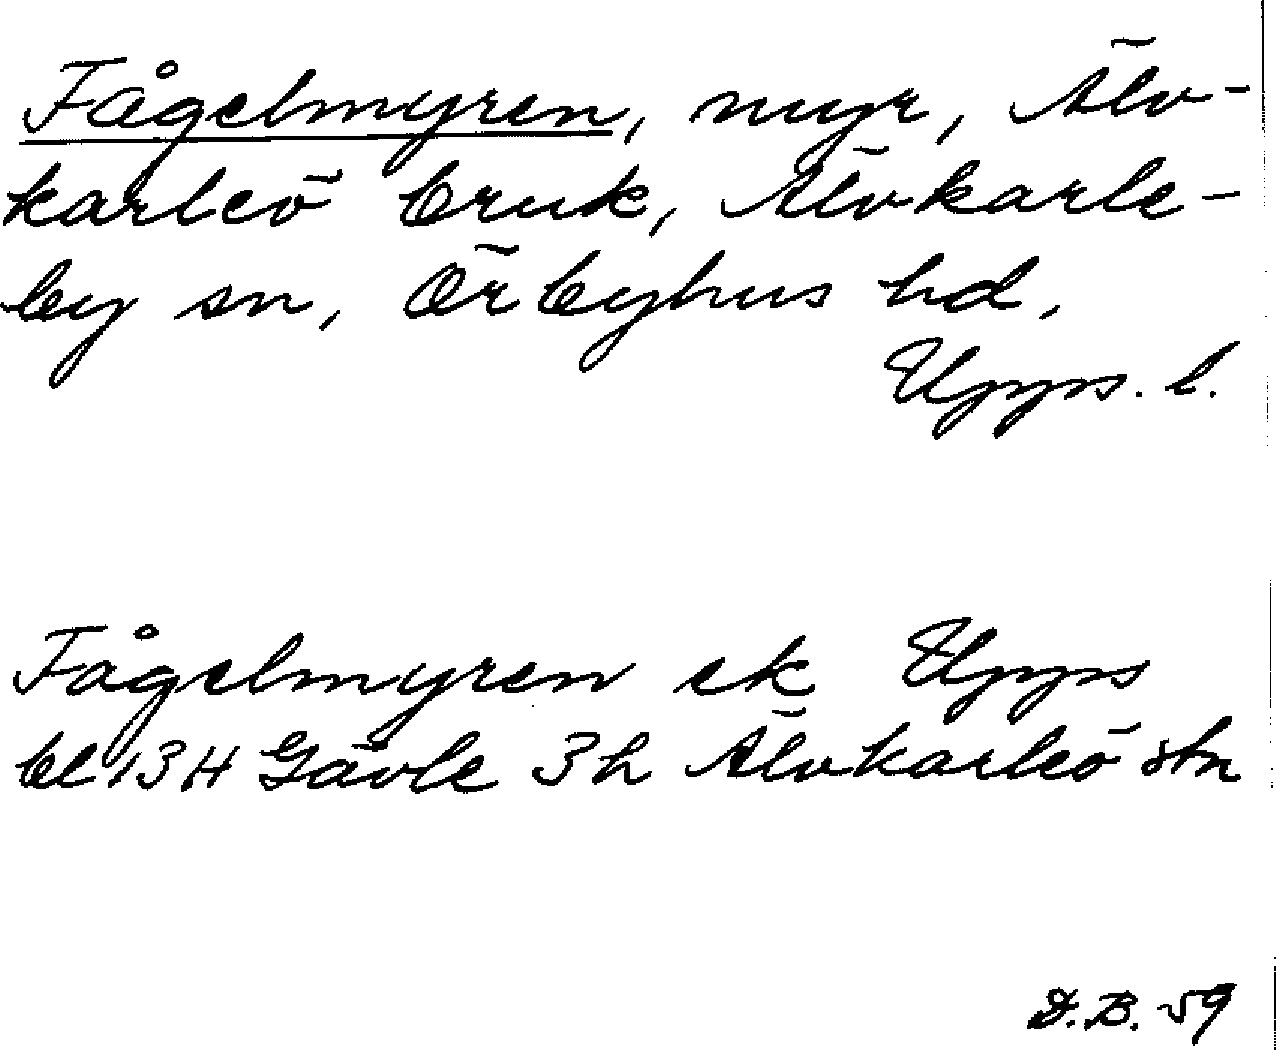 Fågelmyren, myr, Älv-
karleö bruk, Älvkarle-
by sn, Örbyhus hd,
Upps. l.
Fågelmyren ek Upps
bl 13 H Gävle 3 h Älvkarleö stn
D.B. 59